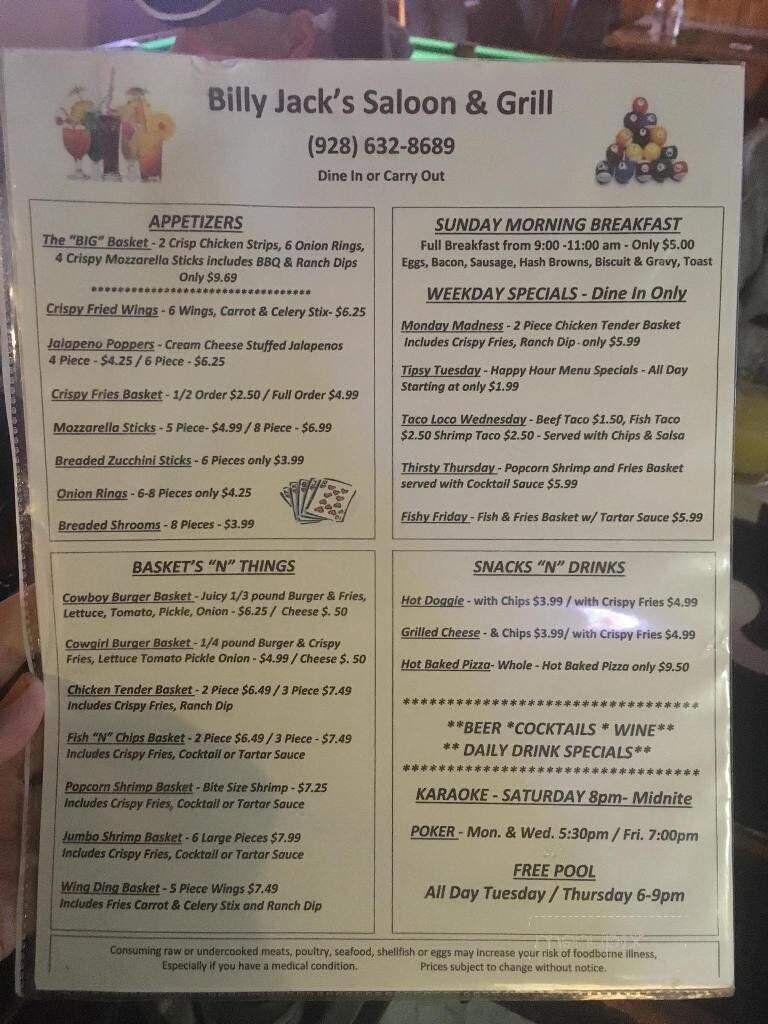 Billy Jack's Saloon & Grill
(928) 632-8689
Dine In or Carry Out
APPETIZERS
The "BIG" Basket - 2 Crisp Chicken Strips, 6 Onion Rings,
4 Crispy Mozzarella Sticks includes BBQ & Ranch Dips
Only $9.69
********************************
Crispy Fried Wings - 6 Wings, Carrot & Celery Stix- $6.25
Jalapeno Poppers - Cream Cheese Stuffed Jalapenos
4 Piece - $4.25 / 6 Piece - $6.25
Crispy Fries Basket - 1/2 Order $2.50 / Full Order $4.99
Mozzarella Sticks - 5 Piece- $4.99 / 8 Piece - $6.99
Breaded Zucchini Sticks - 6 Pieces only $3.99
Onion Rings - 6-8 Pieces only $4.25
Breaded Shrooms - 8 Pieces - $3.99
SUNDAY MORNING BREAKFAST
Full Breakfast from 9:00 -11:00 am - Only $5.00
Eggs, Bacon, Sausage, Hash Browns, Biscuit & Gravy, Toast
WEEKDAY SPECIALS - Dine In Only
Monday Madness - 2 Piece Chicken Tender Basket
Includes Crispy Fries, Ranch Dip - only $5.99
Tipsy Tuesday - Happy Hour Menu Specials - All Day
Starting at only $1.99
Taco Loco Wednesday - Beef Taco $1.50, Fish Taco
$2.50 Shrimp Taco $2.50 - Served with Chips & Salsa
Thirsty Thursday - Popcorn Shrimp and Fries Basket
served with Cocktail Sauce $5.99
Fishy Friday - Fish & Fries Basket w/ Tartar Sauce $5.99
BASKET'S "N" THINGS
Cowboy Burger Basket - Juicy 1/3 pound Burger & Fries,
Lettuce, Tomato, Pickle, Onion - $6.25 / Cheese $. 50
Cowgirl Burger Basket - 1/4 pound Burger & Crispy
Fries, Lettuce Tomato Pickle Onion - $4.99 / Cheese $. 50
Chicken Tender Basket - 2 Piece $6.49 / 3 Piece $7.49
Includes Crispy Fries, Ranch Dip
Fish "N" Chips Basket - 2 Piece $6.49 / 3 Piece - $7.49
Includes Crispy Fries, Cocktail or Tartar Sauce
Popcorn Shrimp Basket - Bite Size Shrimp - $7.25
Includes Crispy Fries, Cocktail or Tartar Sauce
Jumbo Shrimp Basket - 6 Large Pieces $7.99
Includes Crispy Fries, Cocktail or Tartar Sauce
Wing Ding Basket - 5 Piece Wings $7.49
Includes Fries Carrot & Celery Stix and Ranch Dip
SNACKS "N" DRINKS
Hot Doggie - with Chips $3.99 / with Crispy Fries $4.99
Grilled Cheese - & Chips $3.99/ with Crispy Fries $4.99
Hot Baked Pizza- Whole - Hot Baked Pizza only $9.50
**********************************
**BEER *COCKTAILS * WINE**
** DAILY DRINK SPECIALS**
**********************************
KARAOKE - SATURDAY 8pm- Midnite
POKER - Mon. & Wed. 5:30pm / Fri. 7:00pm
FREE POOL
All Day Tuesday / Thursday 6-9pm
Consuming raw or undercooked meats, poultry, seafood, shellfish or eggs may increase your risk of foodborne illness,
Especially if you have a medical condition. Prices subject to change without notice.